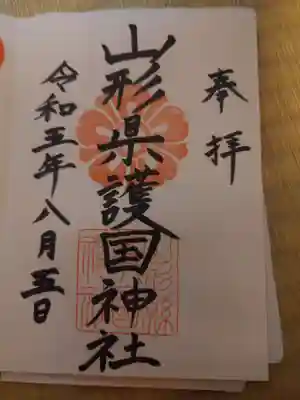 奉拝
山形県護国神社
令和五年八月五日